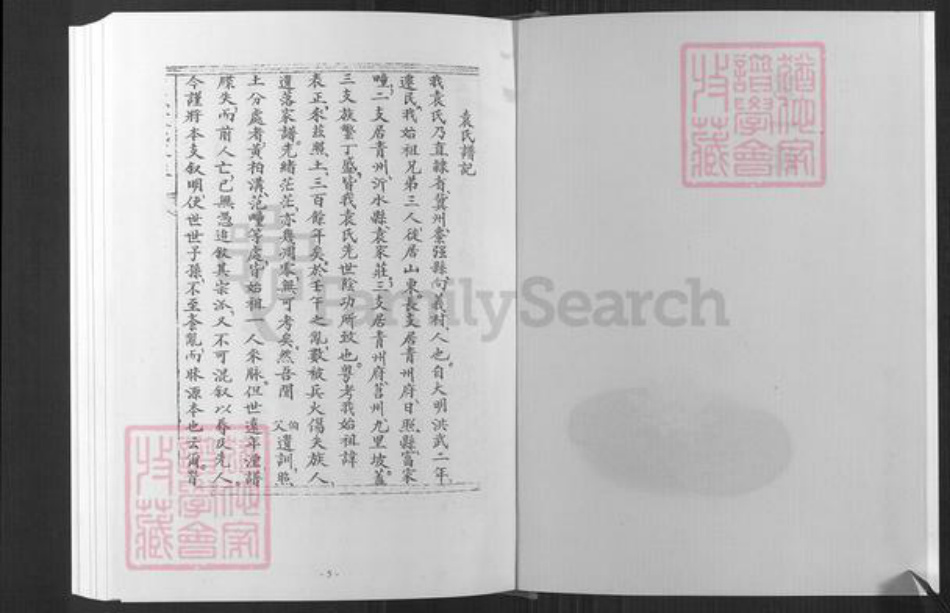 袁氏譜記
我袁氏乃直隸省冀州棗强縣向義村人也。自大明洪武二年
遷民、我始祖兄弟三人、徙居山東、長支居青州府日照縣富家
疃、二支居青州沂水縣袁家莊、三支居青州府莒州九里坡。蓋
三支族繁丁盛、皆我袁氏先世陰功所致也。粤考我始祖諱
表正、來茲照土、三百餘年矣。於壬午之亂、數被兵火、傷失族人、
遺落家譜。先緒茫茫、亦幾凋零、無可考矣。然吾聞 伯父遺訓、照
土分處者、黃柏溝、范疃等處、皆始祖一人來脉。但世遠年湮、譜
牒失、而前人亡、已無憑追敘其宗派、又不可混敘以辱及先人。
今謹將本支敘明、使世世子孫、不至紊亂、而昧源本也云爾。
猶他家譜學會收藏
猶他家譜學會收藏
FamilySearch
-5-